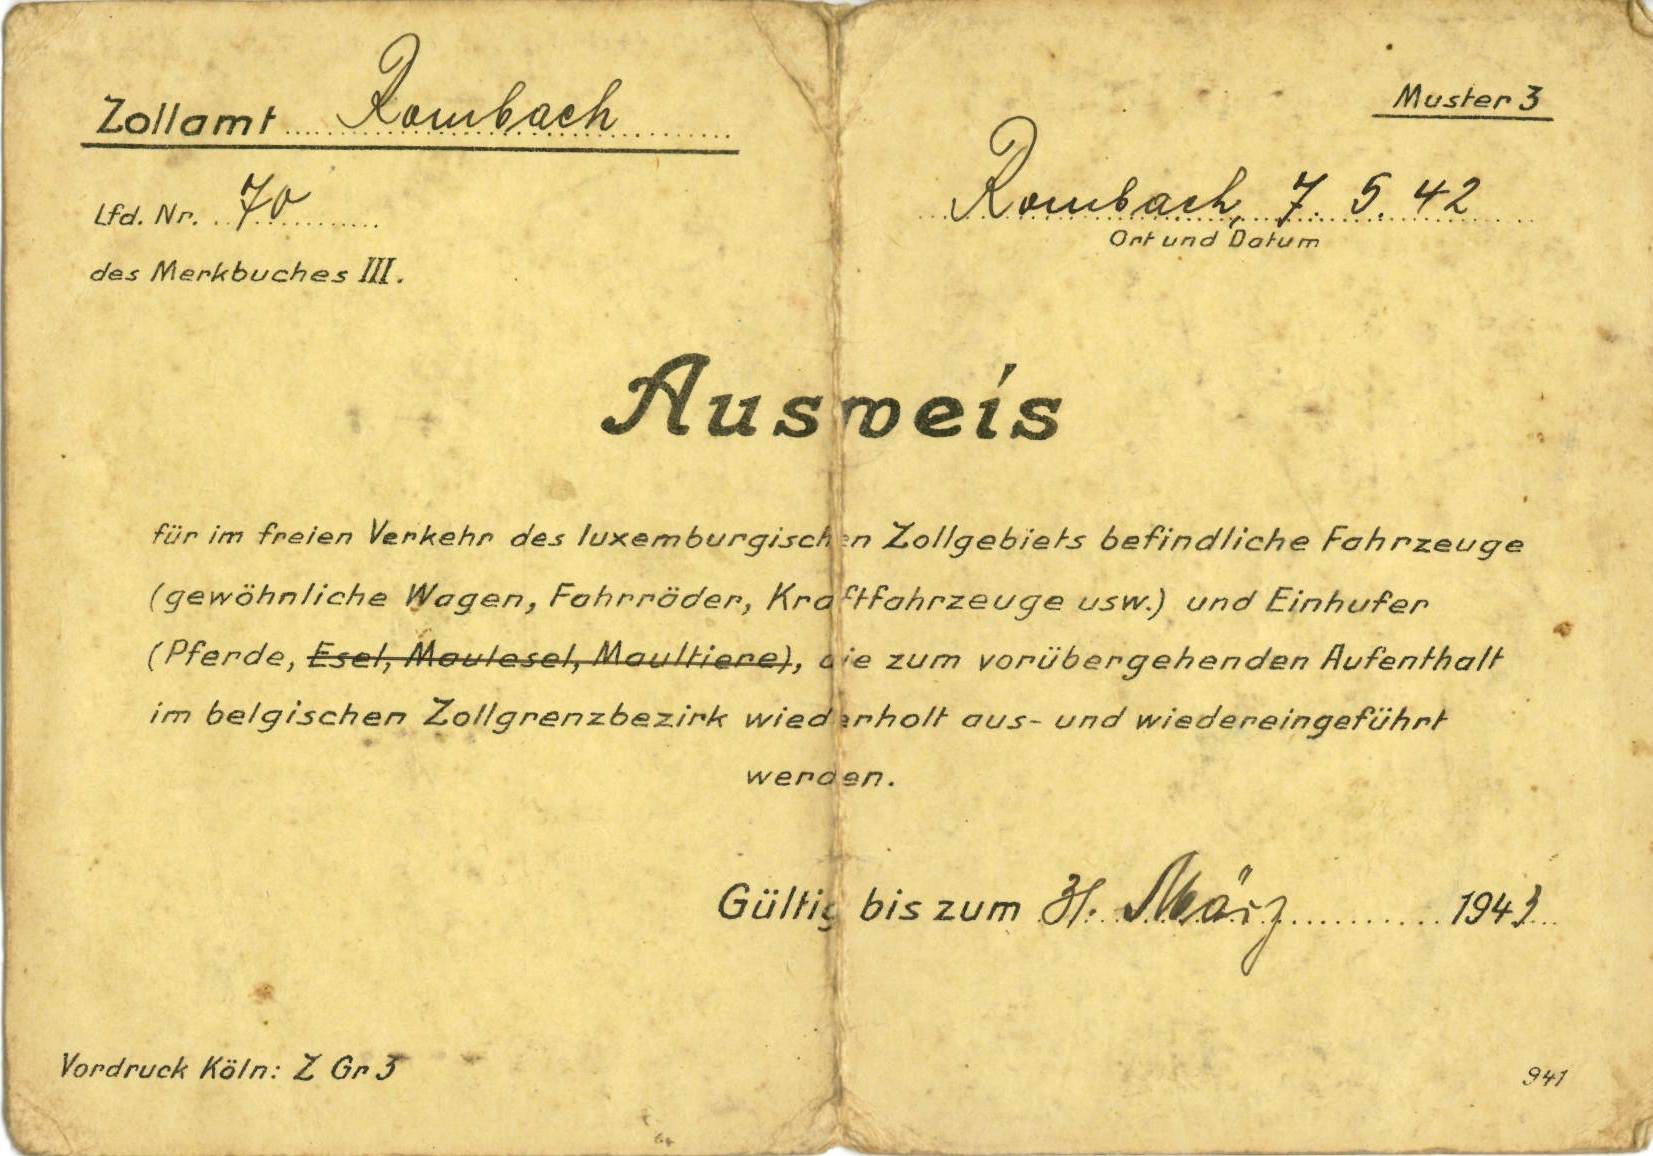 Zollamt Rombach
Muster 3
Lfd. Nr. 70
Rombach, 7. 5. 42
Ort und Datum
des Merkbuches III.
Ausweis
für im freien Verkehr des luxemburgischen Zollgebiets befindliche Fahrzeuge
(gewöhnliche Wagen, Fahrräder, Kraftfahrzeuge usw.) und Einhufer
(Pferde, Esel, Maulesel, Maultiere), die zum vorübergehenden Aufenthalt
im belgischen Zollgrenzbezirk wiederholt aus- und wiedereingeführt
werden.
Gültig bis zum 31. März 1943
Vordruck Köln: Z Gr 3
941